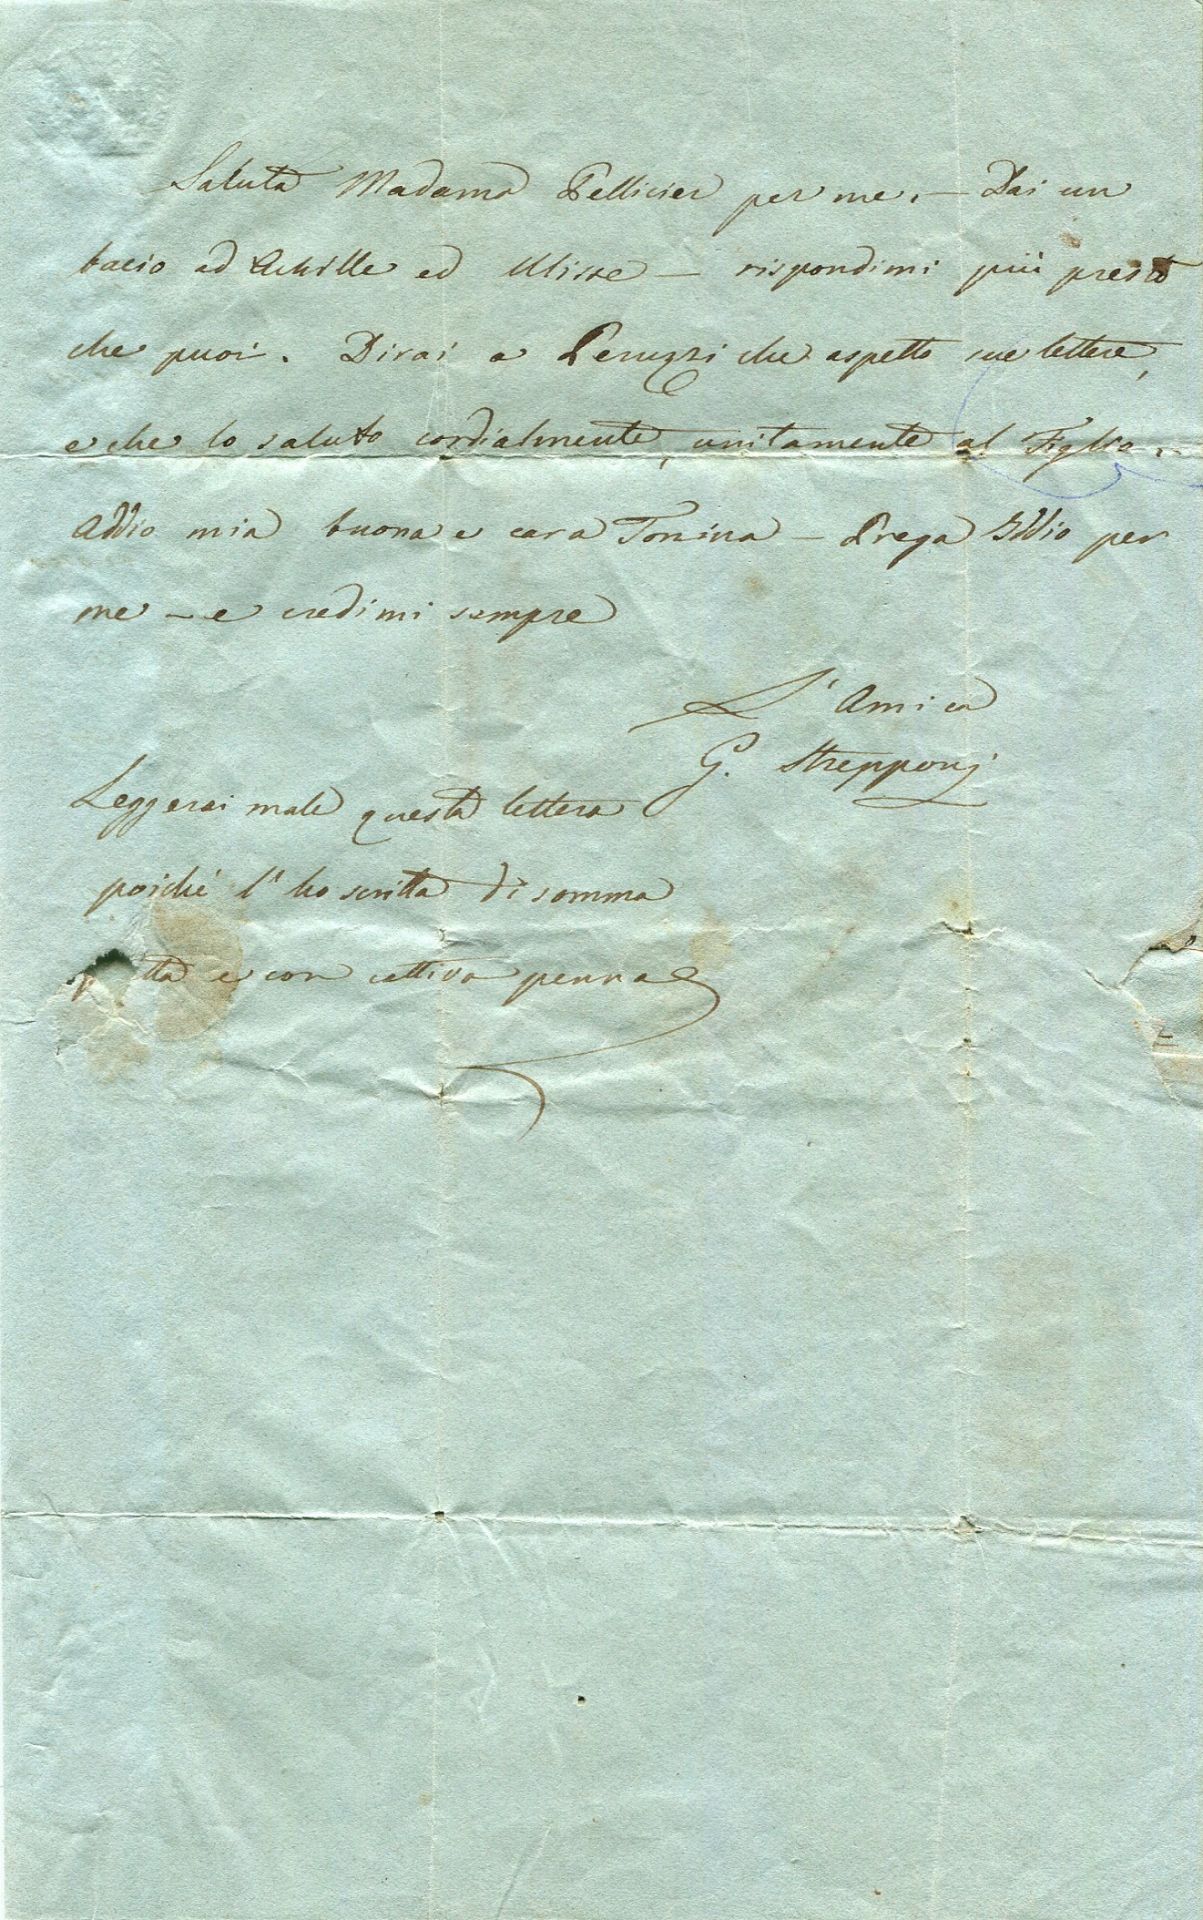 Saluta Madama Pellicier per me. – Dai un
bacio ad Achille ed Ulisse – rispondimi più presto
che puoi. Dirai a Peruzzi che aspetto sue lettere,
e che lo saluto cordialmente, unitamente al Figlio.
Addio mia buona e cara Tonina – Prega Iddio per
me – e credimi sempre
L'Amica
G. Strepponj
Leggerai male questa lettera
poiché l'ho scritta di somma
e con cattiva penna